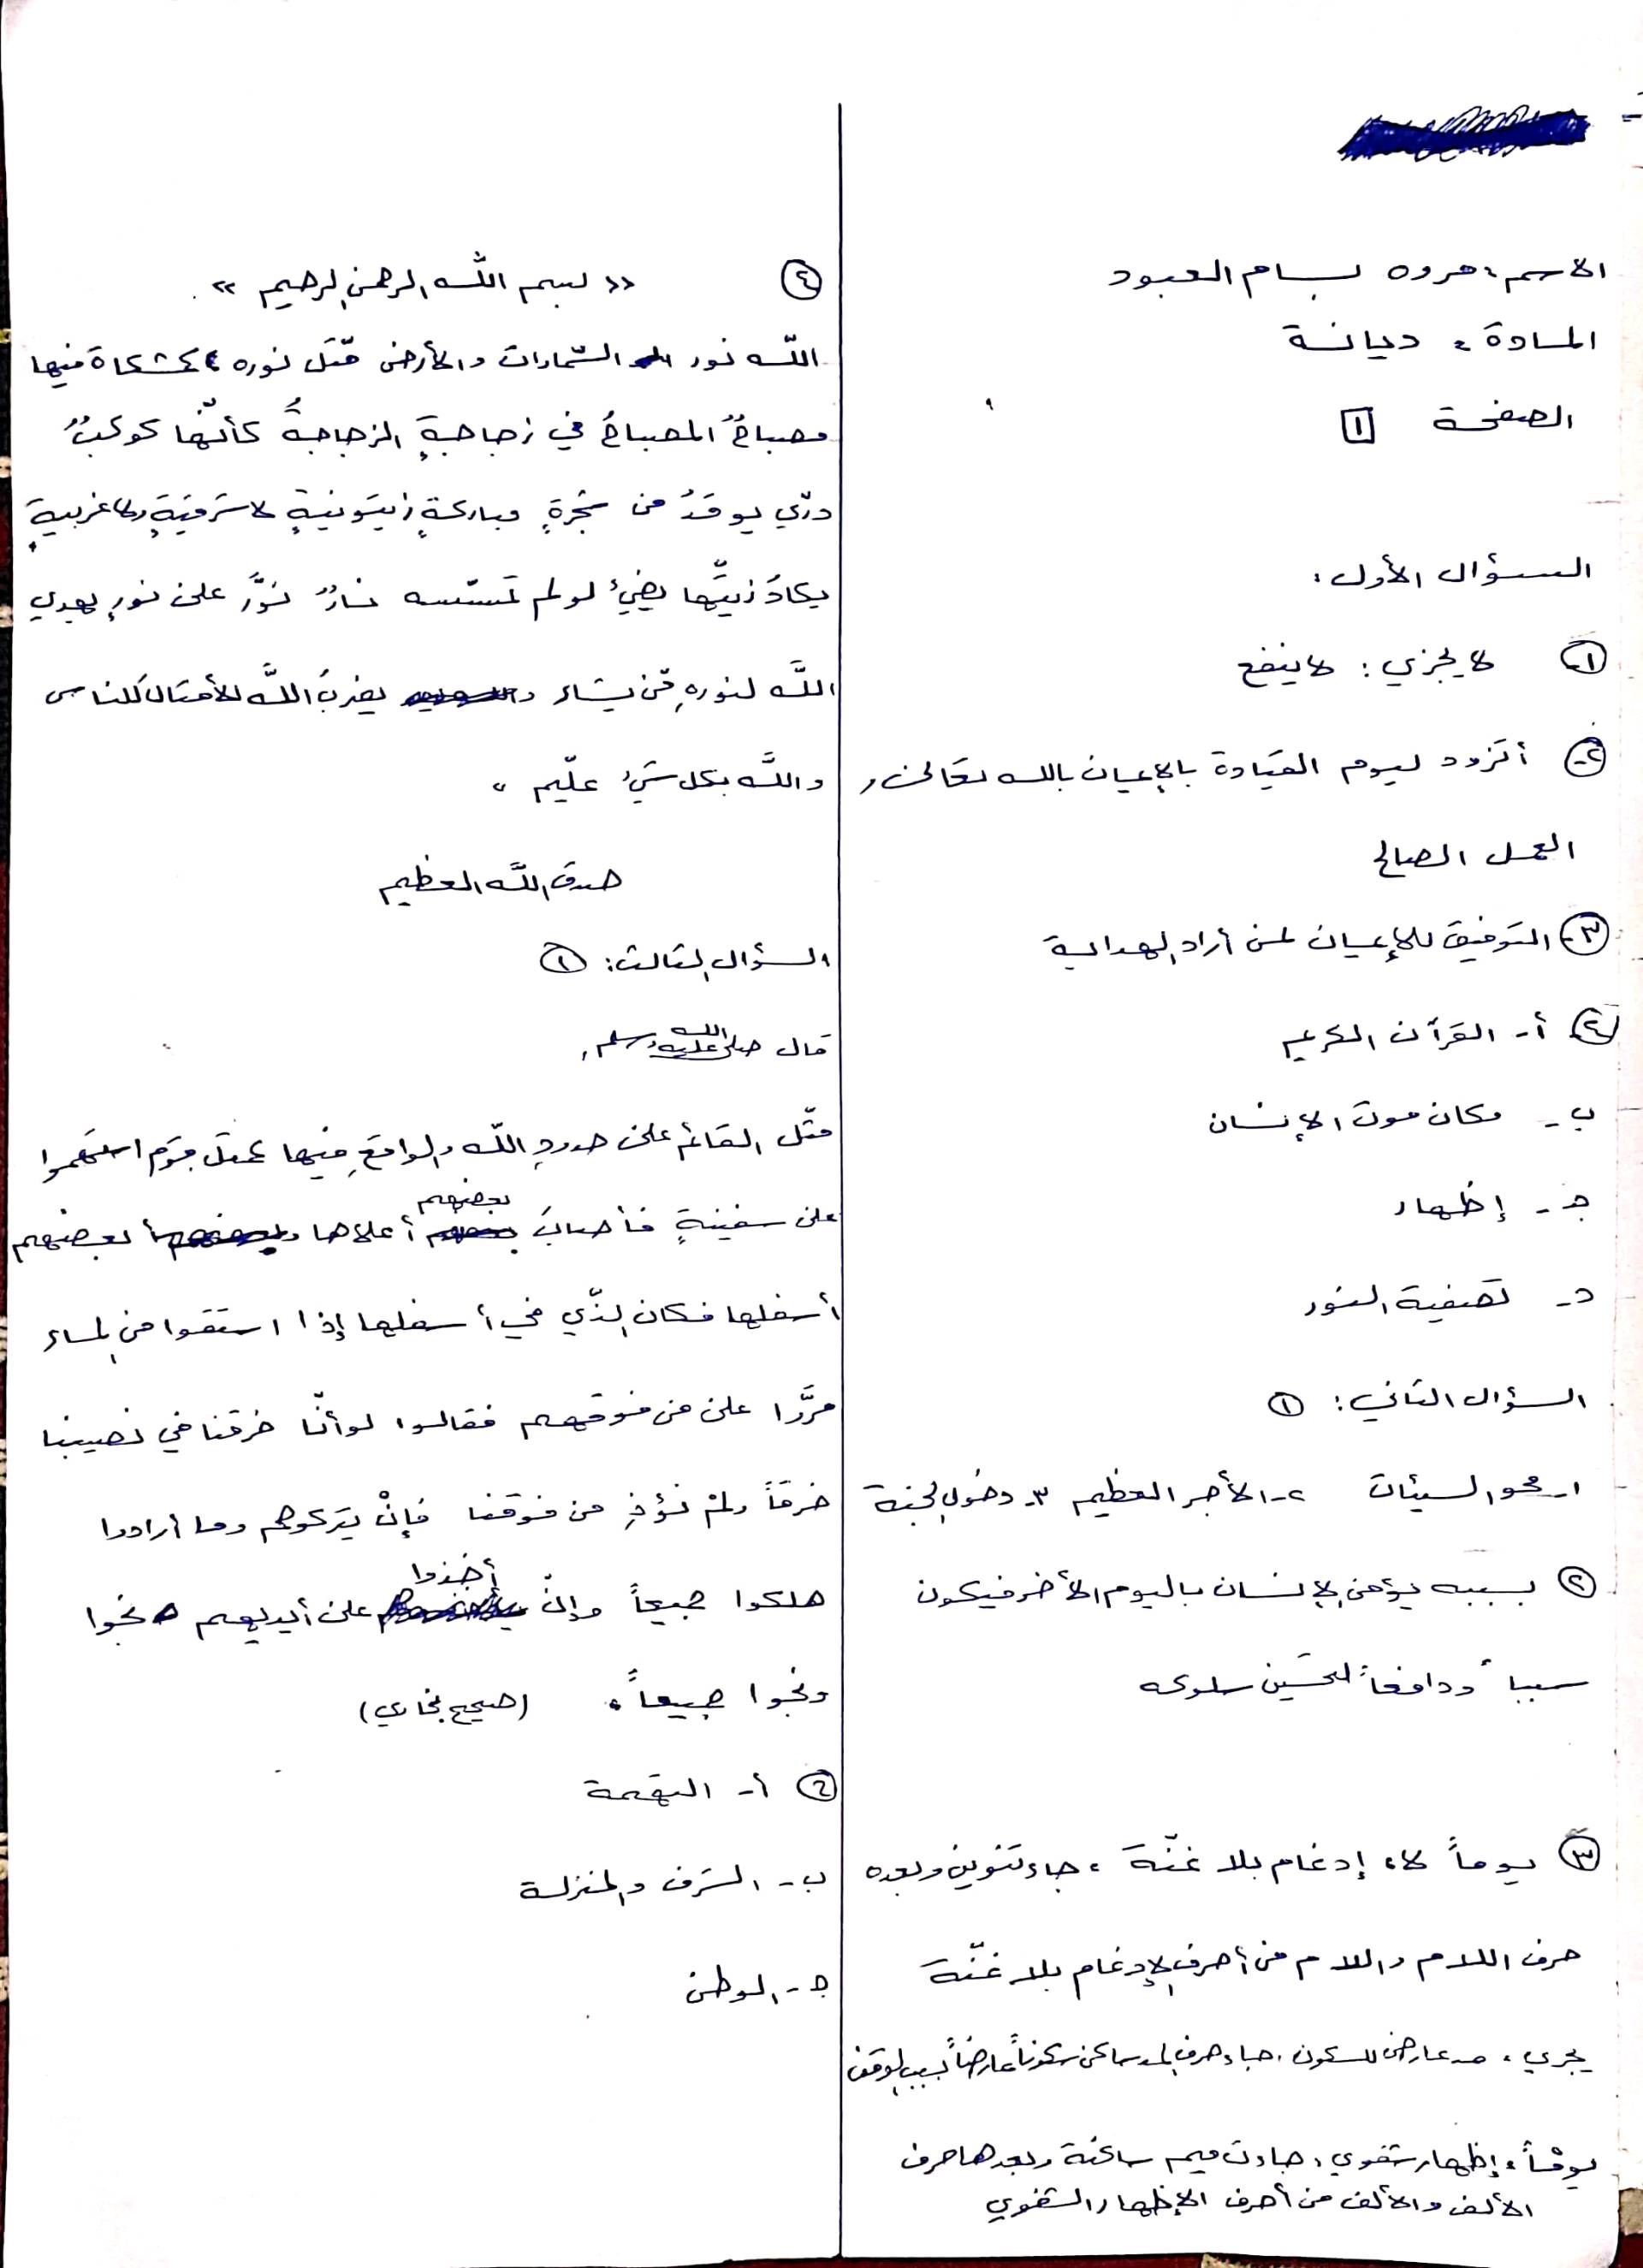 الاسم: مروه بسام العبود
المادة: ديانة
الصفحة ١
السؤال الأول:
١- لا يجزي: لا ينفع
٢- أتزود ليوم القيادة بالإعيان بالله تعالى,
العمل الصالح
٣- التوفيق للإيمان لمن أراد الهداية
٤- أ- القرآن الكريم
ب- مكان موت الإنسان
جـ- إظهار
د- تصفية النور
السؤال الثاني: ١
١- محو السيئات ٢- الأجر العظيم ٣- دخول الجنة
٢ بسببه يؤمن الإنسان باليوم الأخر فيكون
سبباً ودافعاً لتحسين سلوكه
٣ يوماً لا: إدغام بلا غنّة، جاء تنوين وبعده
حرف اللام واللام من أحرف الإدغام بلا غنّة
يجري: مد عارض للسكون، جاء حرف المد ساكن سكوناً عارضاً بسبب الوقف
إظهار شفوي، جاءت ميم ساكنة وبعدها حرف
الألف والألف من أحرف الإظهار الشفوي
٤ « بسم الله الرحمن الرحيم »
الله نور السّماوات والأرض مّثل نوره كمشكاة فيها
مصباحٌ المصباحُ في زجاجةٍ الزجاجةُ كأنّها كوكبٌ
درّي يوقدُ من شجرةٍ مباركةٍ زيتونيةٍ لا شرقيةٍ ولا غربيةٍ
يكادُ زيتُّها يضيءُ لو لم تمسّسه نارٌ نوّرٌ على نورٍ يهدي
اللَّه لنورهِ مّن يشاء و يضربُ اللَّه للأمثال للناس
واللَّه بكل شيءٍ علّيم "
صدق اللَّه العظيم
السؤال الثالث: ١
قال صلى الله عليه وسلم,
مثّل القائم على حدودِ اللّه والواقعِ فيها كمثل قوم استهموا
على سفينةٍ فأصابَ بعضهم أعلاها و بعضهم
أسفلها فكان الذّي في أسفلها إذا استقوا من الماء
مرَّرا على من فوقهم فقالوا لو أنّا خرقنا في نصيبنا
خرقاً ولمْ نؤذِ من فوقنا فإنْ يتركوهم وما أرادوا
هلكوا جميعاً وإنّ أخذوا على أيديهم نجوا
ونجوا جميعاً. (صحيح بخاري)
٢ أ- التهمة
ب- الشرف والمنزلة
جـ- الوطن